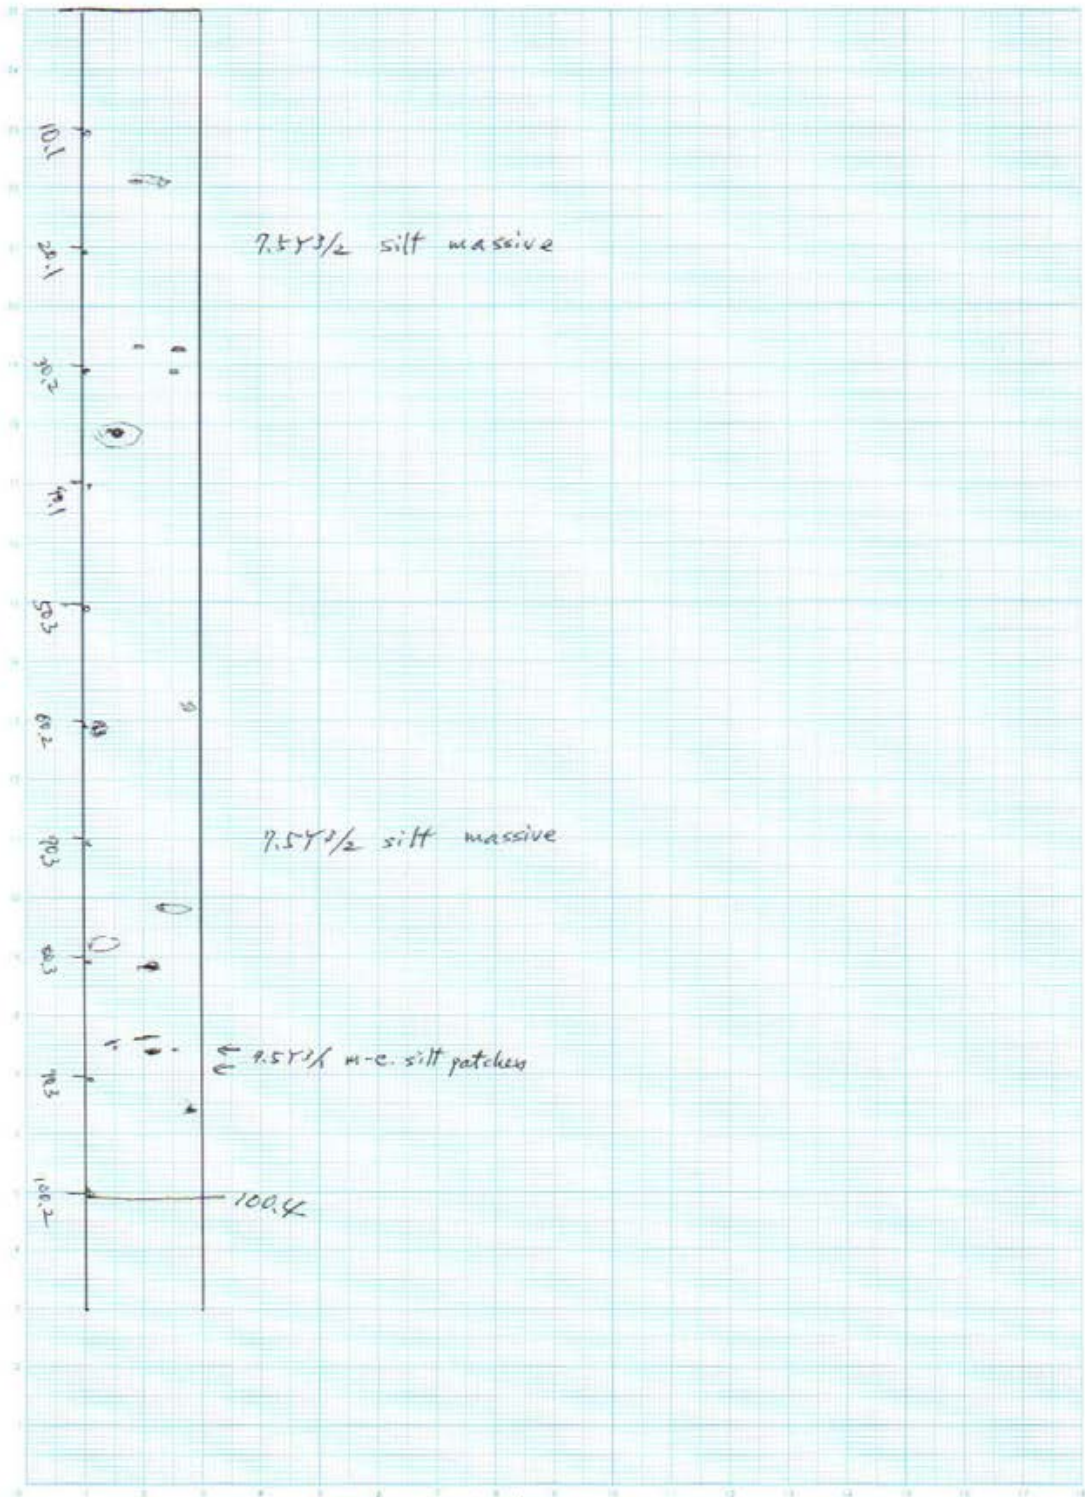 10.1
7.5Y3/2 silt massive
20.1
30.2
40.1
50.3
60.2
7.5Y3/2 silt massive
70.3
80.3
m-c. silt patches
90.3
100.2
100.4